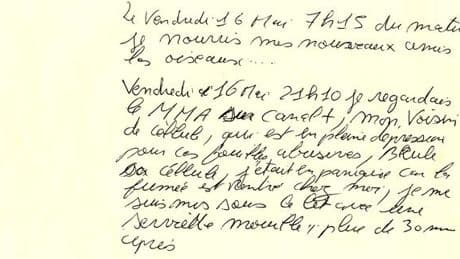 Le Vendredi 16 Mai 7h15 du matin
je nourris mes nouveaux amis
les oiseaux....
Vendredi 16 Mai 21h10 je regardais
le MMA sur Canal+, mon Voisin
de cellule, qui est en pleine depression
pour ces fouilles abusives, Brule
sa cellule, j'etait en panique car la
fumée est rentré chez moi, je me
suis mis sous le lit avec une
serviette mouillé, plus de 30 mn
après